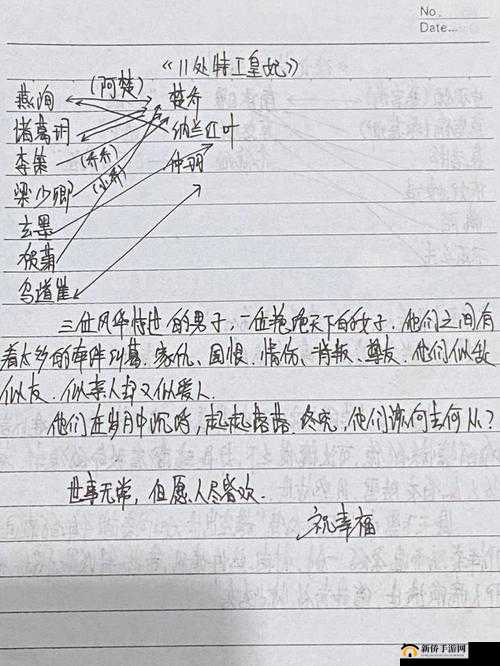 No.
Date.
《11处特工皇妃》
燕洵 (阿楚) 楚乔
诸葛玥 纳兰红叶
李策 (乔乔) 仲羽
梁少卿 (小乔)
玄墨
乌道崖
三位风华特世的男子,一位艳绝天下的女子.他们之间有
着太多的牵绊纠葛.家仇、国恨、情伤、背叛、尊友.他们似敌
似友.似亲人却又似爱人.
他们在岁月中沉浮,起起落落.终究,他们该何去何从?
世事无常,但愿人尽皆欢.
祝幸福
新侨手游网